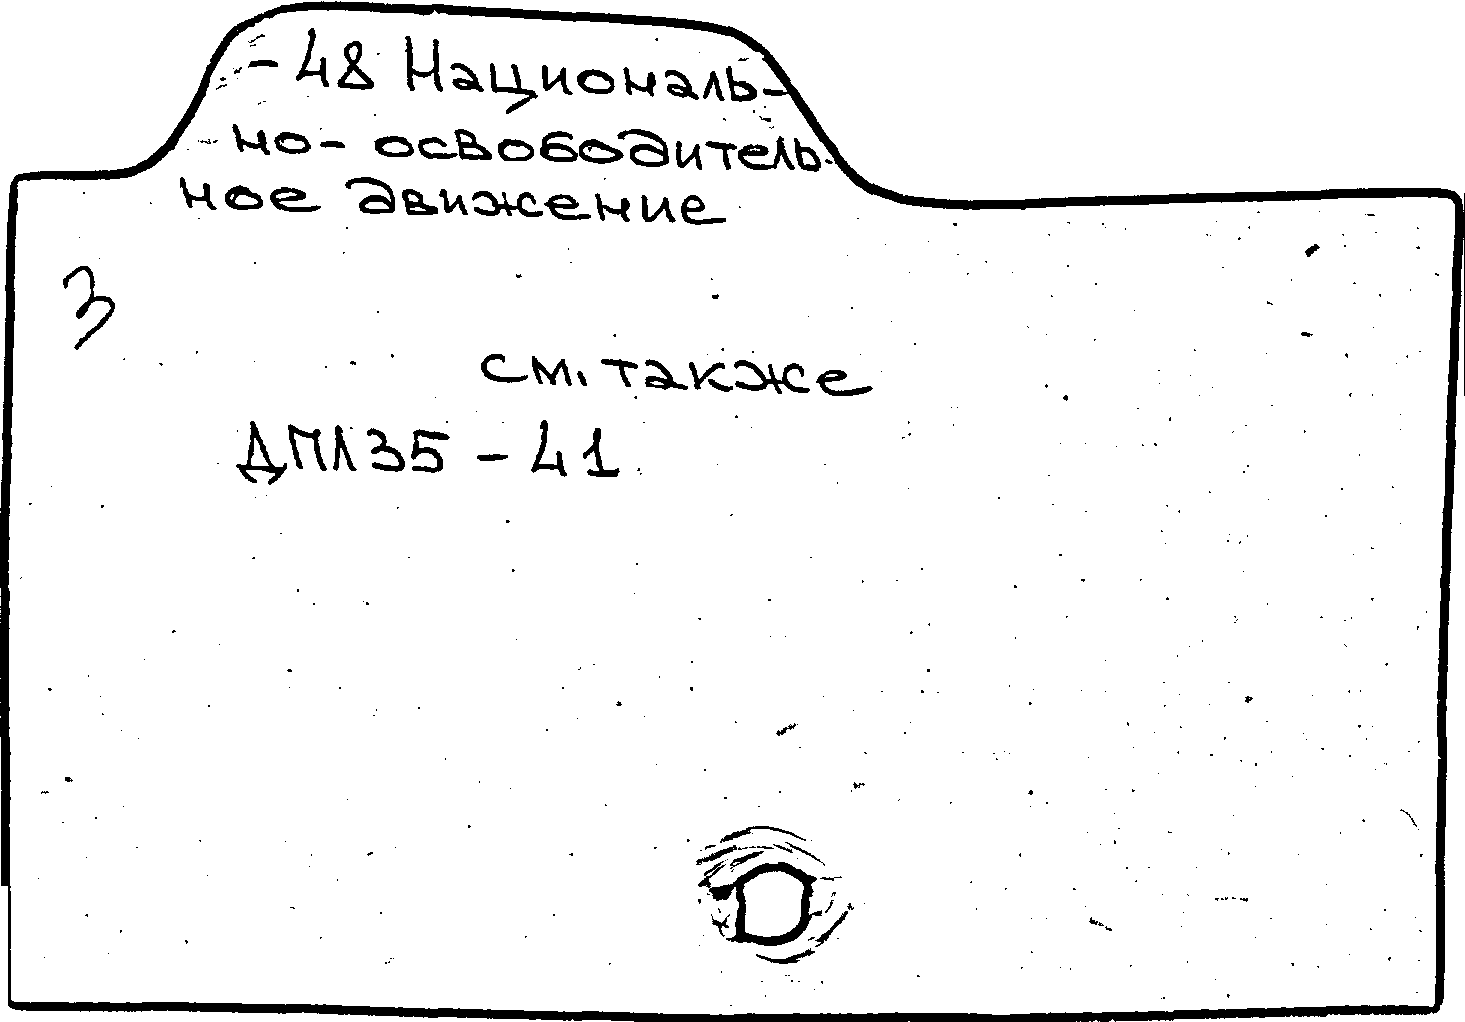 -48 Националь-
но-освободитель-
ное движение
З
см. также
ДПЛ35-41